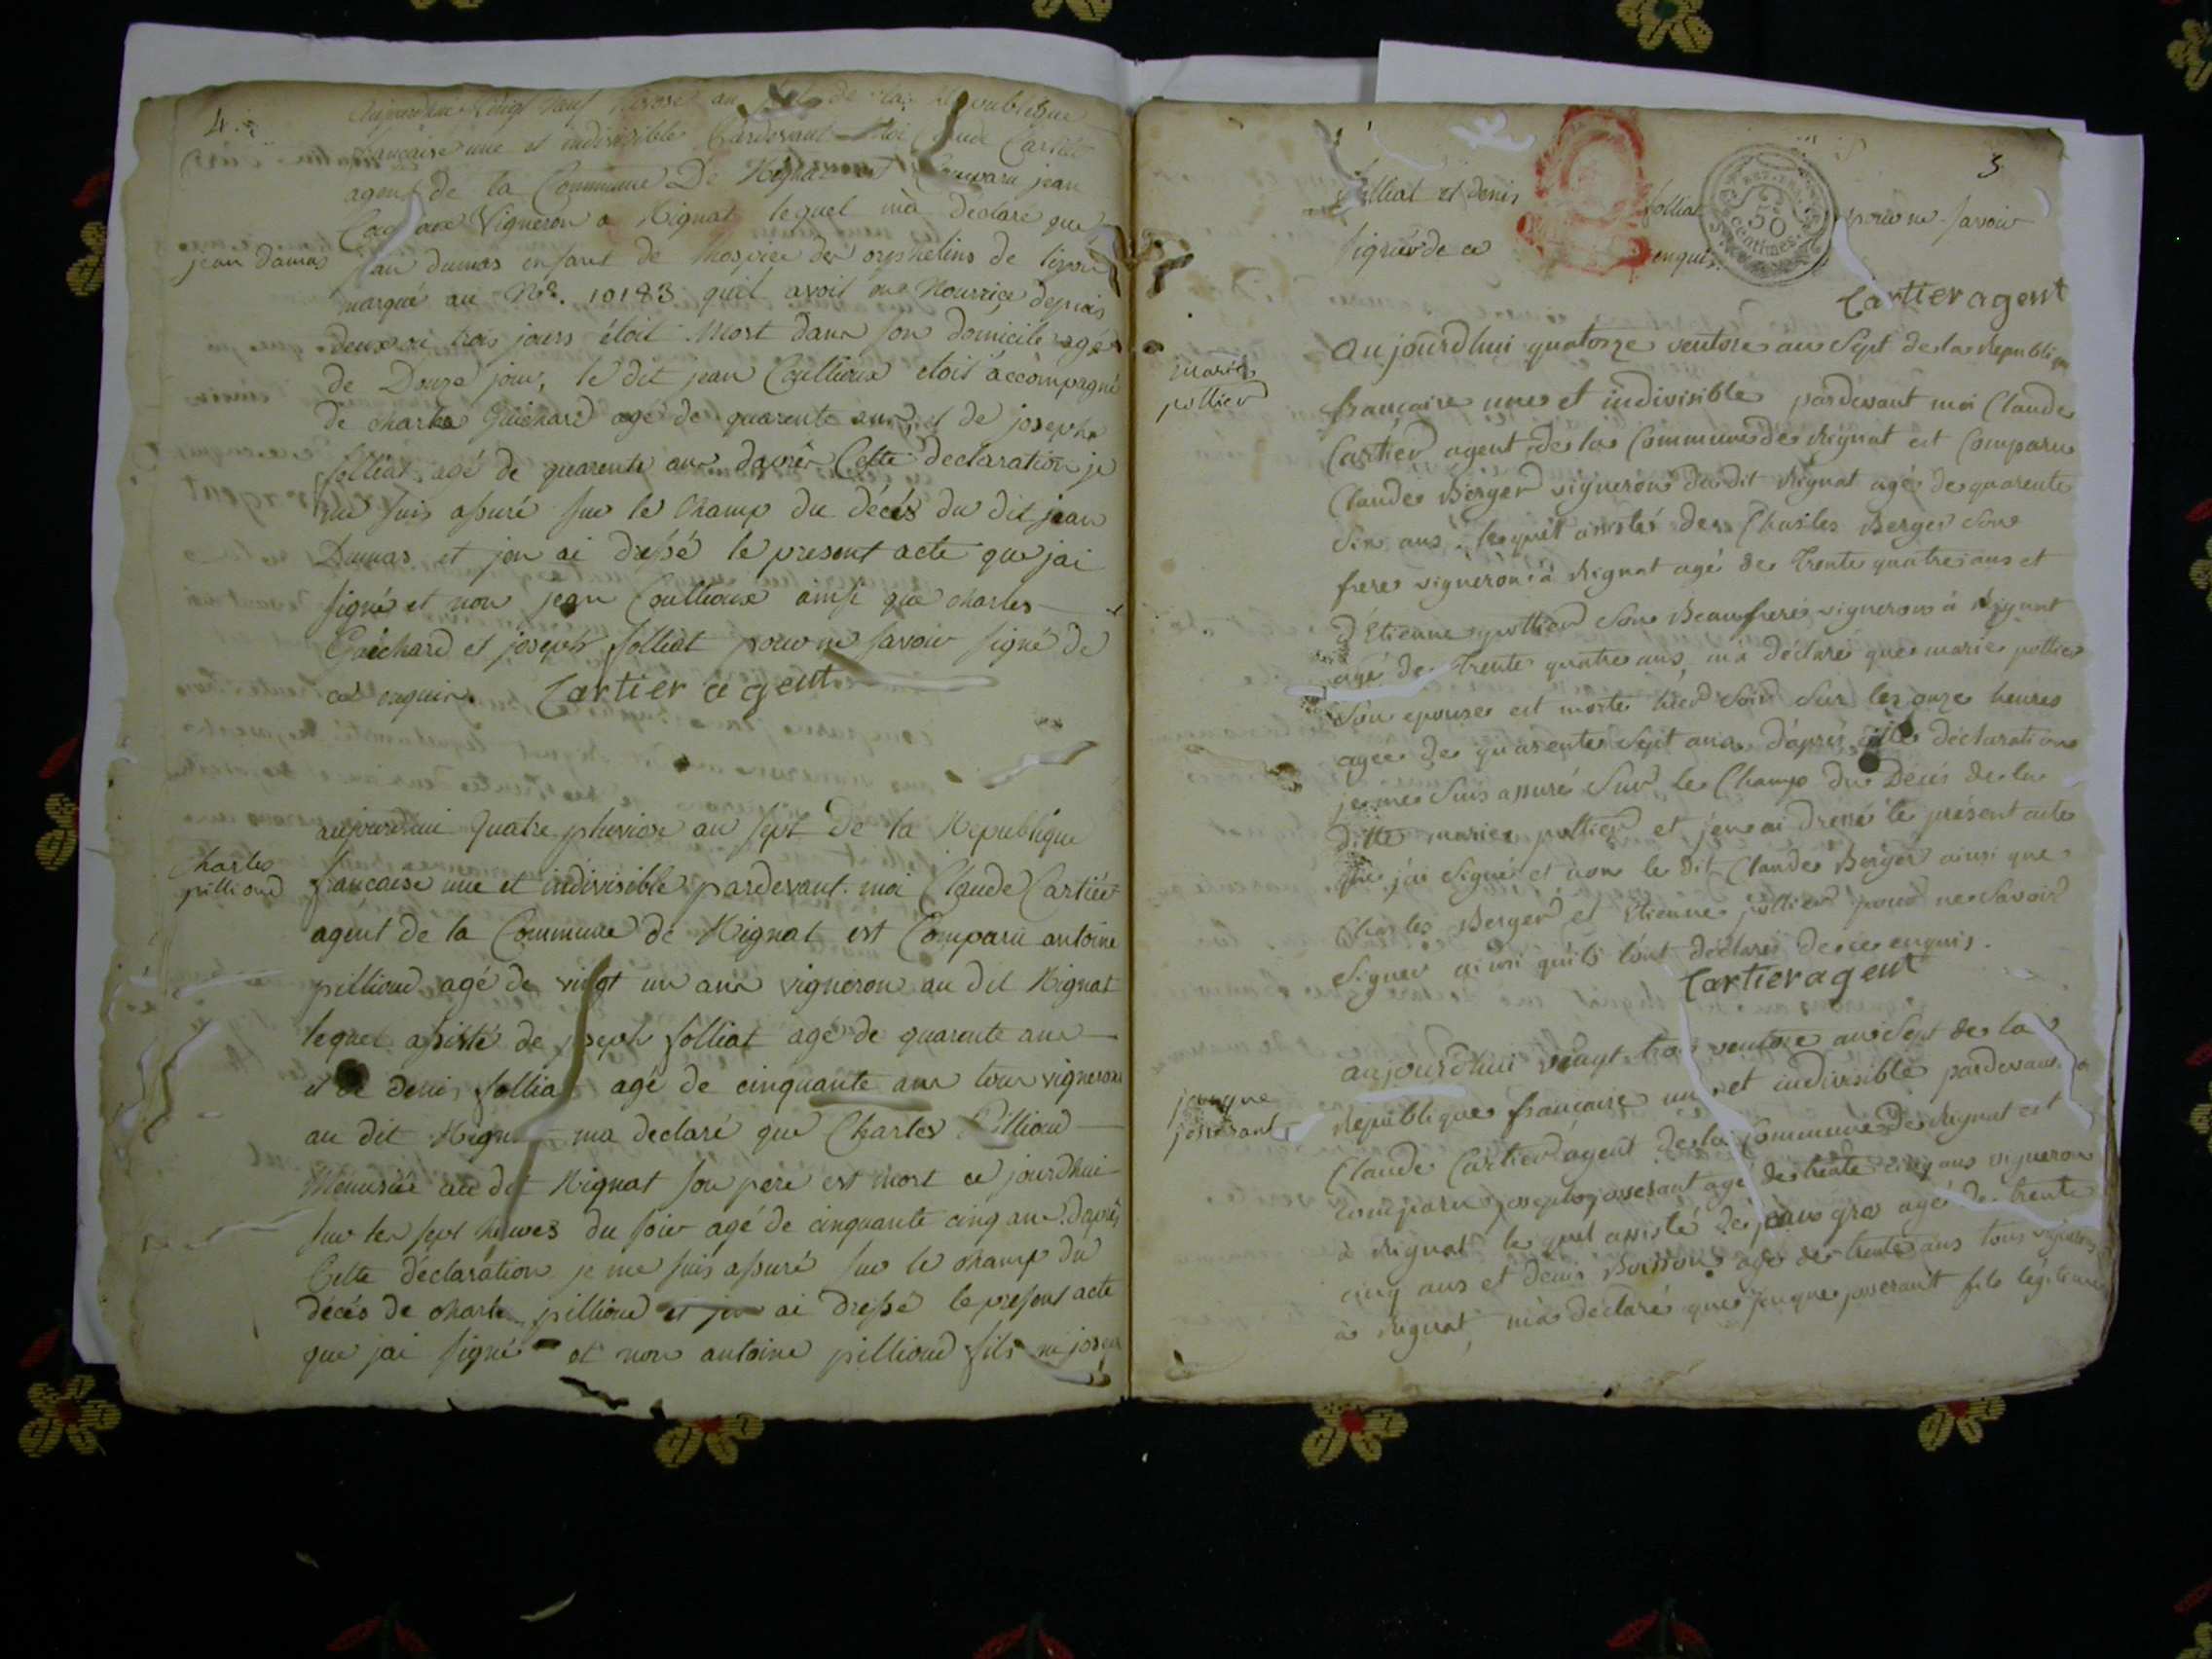 4.
aujourdhui vingt neuf nivose an sept de la Republique
francaise une et indivisible Pardevant Moi Claude Cartier
agent de la Commune De Rignat est Comparu jean
Vigneron a Rignat lequel ma declaré que
jean damas
jean dumas enfant de lhospice des orphelins de lion
marqué au No. 10183 quil avoit en Nourrice depuis
deux ou trois jours étoit Mort dans son domicile agé
de Douze jour, le dit jean Coullioux etoit accompagné
de charles Guichard agé de quarente ans et de joseph
folliat agé de quarente ans daprés Cette declaration je
me suis assuré sur le champ du décés du dit jean
Dumas et jen ai dressé le present acte que jai
signé et non jean Coullioux ainsi que charles
Guichard et joseph folliat pour ne savoir signé de
ce enquis. Cartier agent
aujourdhui quatre pluviose an sept de la Republique
Charles
pillioud
francaise une et indivisible pardevant moi Claude Cartier
agent de la Commune de Rignat est Comparu antoine
pillioud agé de vingt un ans vigneron au dit Rignat
lequel assisté de joseph folliat agé de quarente ans
et de denis folliat agé de cinquante ans tous vignerons
au dit Rignat ma declaré que Charles Pillioud
au dit Rignat son pere est mort ce jourdhui
sur les sept heures du soir agé de cinquante cinq ans daprés
Cette déclaration je me suis assuré sur le champ du
décés de charles pillioud et jen ai dressé le present acte
que jai signé et non antoine pillioud fils ni joseph
3
folliat et denis folliat pour ne savoir
signer de ce enquis.
REP. FRA.
50
centimes
Cartier agent
marie
pottier
aujourdhui quatorze ventose an Sept de la republique
française une et indivisible pardevant moi Claude
Cartier agent de la Commune de Rignat est Comparu
Claude Berger vigneron du dit Rignat agé de quarente
Six ans lequel assisté de Charles Berger son
frere vigneron à Rignat agé de trente quatre ans et
d'Etienne pottier son Beaufrere vigneron à Rignat
agé de trente quatre ans, m'a déclaré que marie pottier
son epouse est morte hier soir sur les onze heures
agée de quarente sept ans d'aprés cette déclaration
je me suis assuré Sur le Champ du Decés de la
ditte marie pottier et jen ai dressé le présent acte
que j'ai signé et non le dit Claude Berger ainsi que
Charles Berger et Etienne pottier pour ne savoir
signer ainsi quils l'ont déclaré de ce enquis.
Cartier agent
aujourdhui vingt trois ventose an Sept de la
jacque
josserant
Republique française une et indivisible pardevant
Claude Cartier agent de la Commune de Rignat est
comparu joseph josserant agé de trente cinq ans vigneron
à Rignat lequel assisté de jean gros agé de trente
cinq ans et denis Buisson agé de trente ans tous vignerons
à Rignat, m'a déclaré que jacque josserant fils légitime